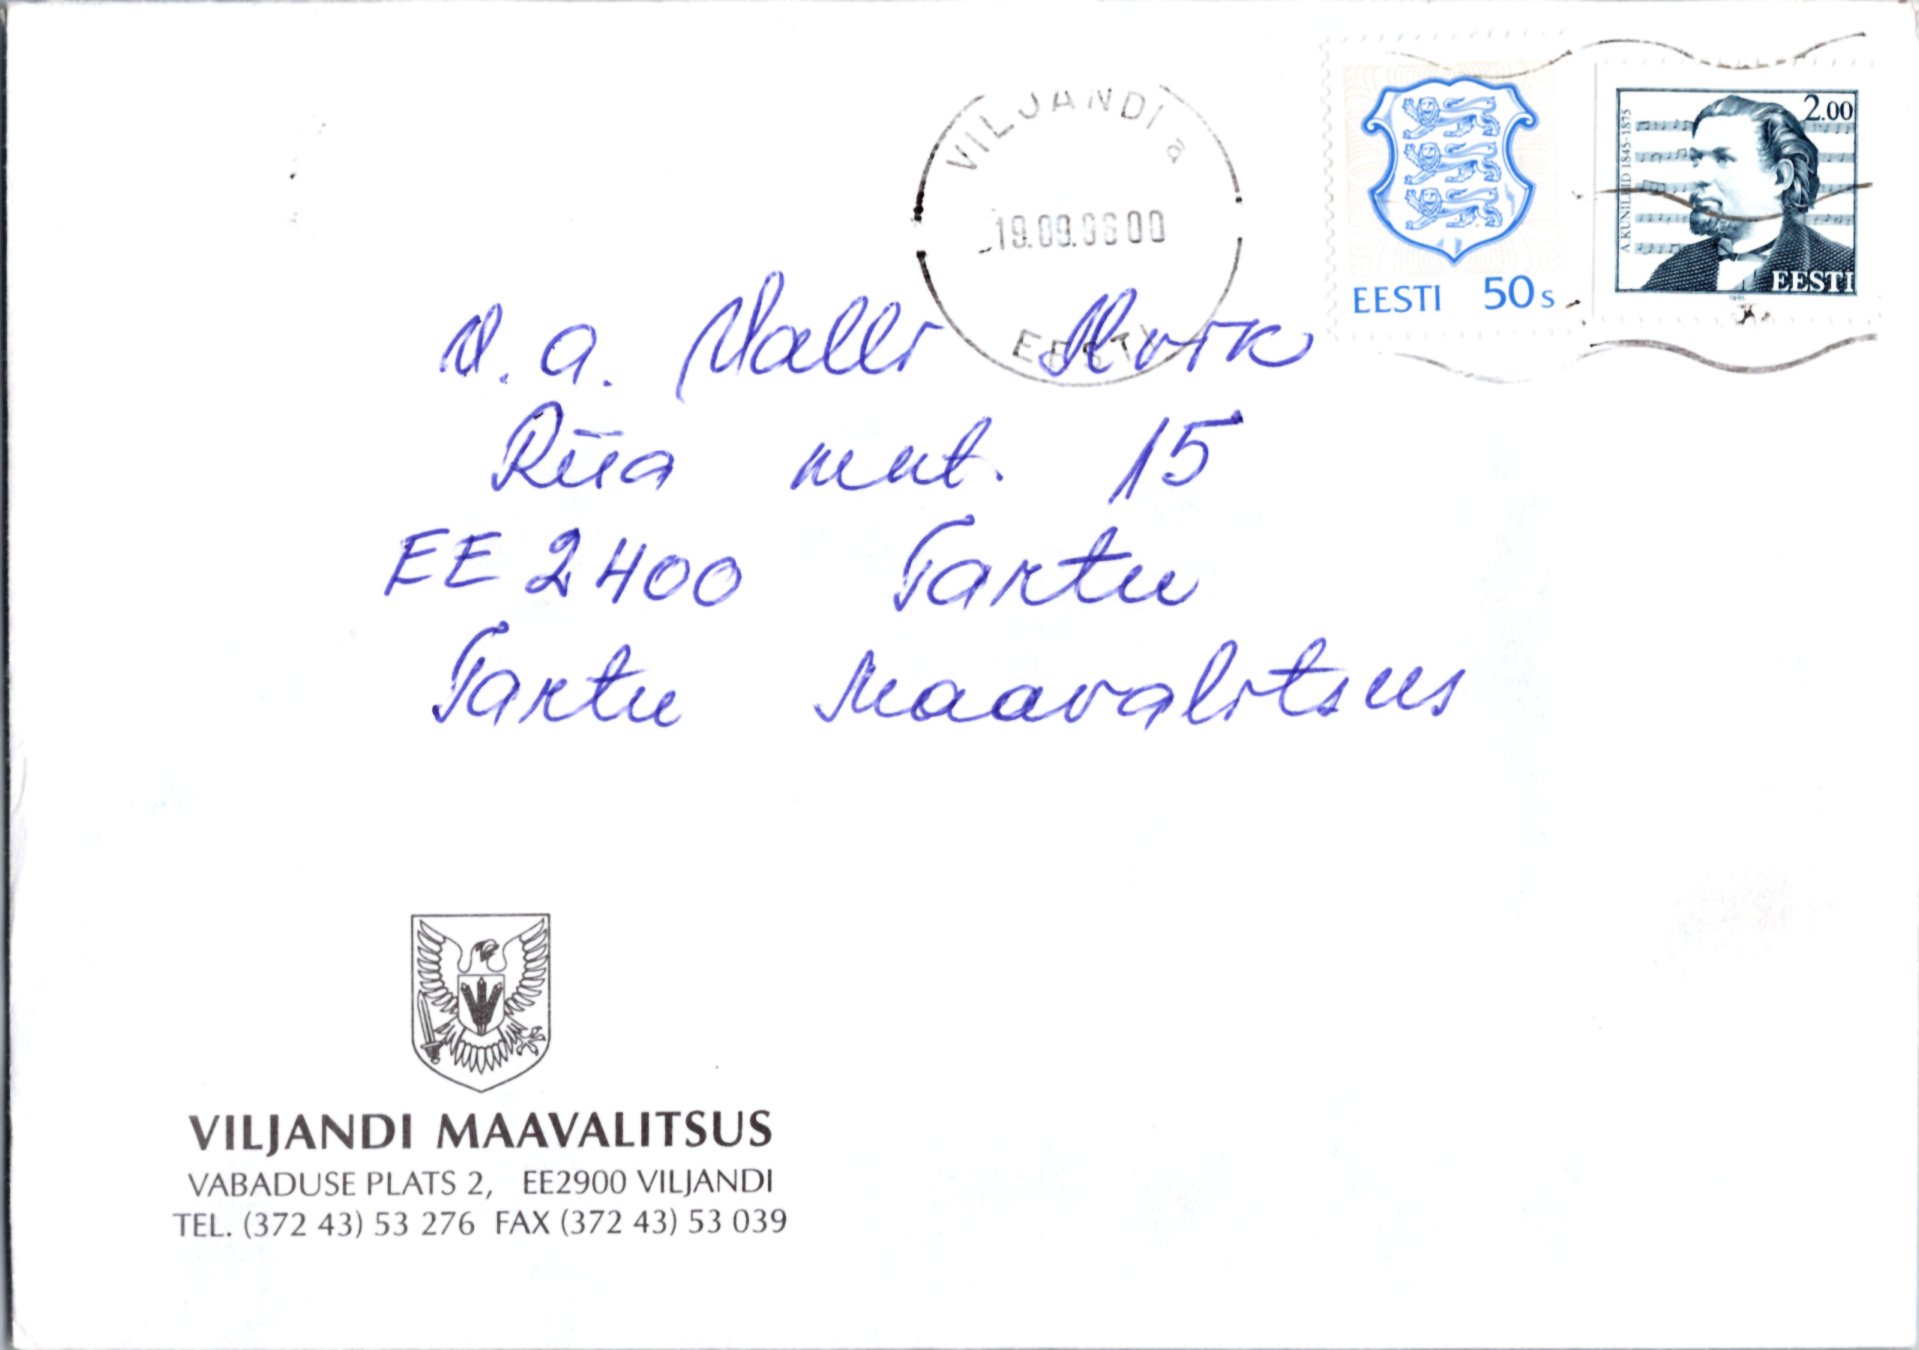 VILJANDI a
19.09.96 00
EESTI
EESTI 50s
A. KUNILEID 1845-1875
2.00
EESTI
1995
V. a. Valli
Riia mnt. 15
EE 2400 Tartu
Tartu Maavalitsus
VILJANDI MAAVALITSUS
VABADUSE PLATS 2, EE2900 VILJANDI
TEL. (372 43) 53 276 FAX (372 43) 53 039